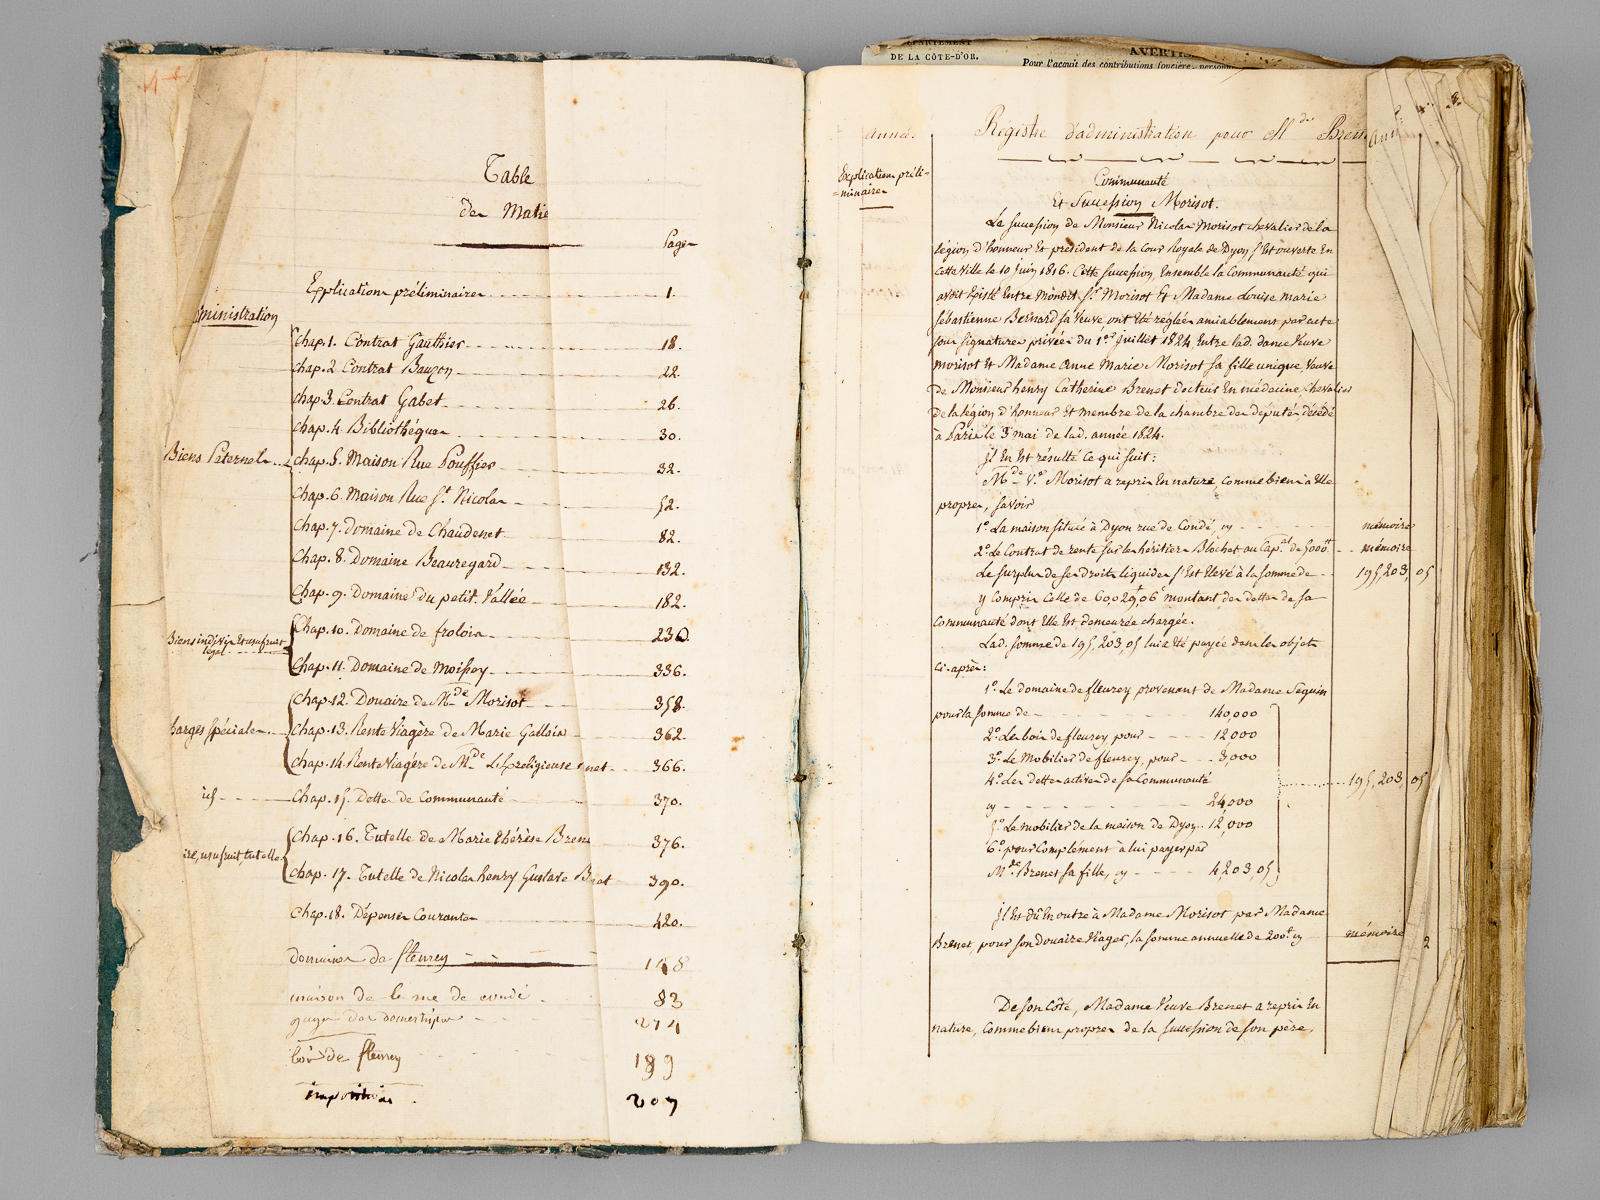 Table
des Matiè
Pages
Explications préliminaires 1.
ministration
Chap. 1. Contrat Gauthier 18.
Chap. 2 Contrat Bauzon 22.
Chap. 3. Contrat Gabet 26.
Chap. 4. Bibliothéques 30.
Biens Paternels
Chap. 5. Maison Rue Pouffier 32.
Chap. 6. Maison Rue St. Nicolas 52.
Chap. 7. Domaine de Chaudenet 82.
Chap. 8. Domaine Beauregard 132.
Chap. 9. Domaine du petit Vallée 182.
Biens indivis et usufruit
légal
Chap. 10. Domaine de frolois 236.
Chap. 11. Domaine de Moissey 336.
harges spéciales
Chap. 12. Douaire de Mde Morisot 358.
Chap. 13. Rente Viagère de Marie Gallois 362.
Chap. 14. Rente Viagère de Mde religieuse 366.
Chap. 15. Dettes de Communauté 370.
ire, usufruit, tutelle
Chap. 16. Tutelle de Marie thérèse Bren 376.
Chap. 17. Tutelle de Nicolas henry Gustave B 390.
Chap. 18. Dépenses Courantes 420.
domaines de fleurey 148
maison de la rue de condé 83
gages des domestiques 274
bois de fleurey 189
impositions 207
DE LA CÔTE-D'OR.
Pour l'acquit des contributions foncière, personn
année. Régistre d'administration pour Mde Bren
3.
Explications préli=
=minaires
Communauté
Et Succession Morisot.
La succession de Monsieur Nicolas Morisot chevalier de la
légion d'honneur Et président de la Cour Royale de Dyon s'Est ouverte En
Cette Ville le 10 Juin 1816. Cette succession, Ensemble la Communauté qui
avoit Existé Entre mondit Sr. Morisot Et Madame Louise marie
Sébastienne Bernard sa Veuve, ont Eté réglées amiablement par acte
sous signatures privées du 1er Juillet 1824, Entre lad. dame Veuve
morisot Et Madame Anne Marie Morisot sa fille unique, Veuve
de Monsieur henry Catherine Brenet docteur En médecine, Chevalier
De la légion d'honneur Et membre de la chambre des députés, décédé
à Paris le 3 mai de lad. année 1824.
Il En Est résulté Ce qui suit:
Mde Ve Morisot a repris En nature, Comme biens à Elle
propres, savoir
1° La maison située à Dyon rue de Condé, cy mémoire
2° Le Contrat de rente sur les héritiers Blochet au Cap.al de 5000 mémoire
Le surplus de ses droits liquides s'Est Elevé à la somme de 195,203,05
y compris Celle de 60,029,06 montant des dettes de la
Communauté dont Elle Est demeurée chargée.
Lad. somme de 195,203,05 lui a Eté payée dans les objets
Ci-après:
1°. Le domaine de fleurey provenant de Madame Seguin
pour la somme de 140,000
2°. Les bois de fleurey, pour 12,000
3°. Le Mobilier de fleurey, pour 3,000
4°. Les dettes actives de sa Communauté
cy 24,000
195,203,05
5°. Le mobilier de la maison de Dyon 12,000
6°. pour Complément à lui payer par
Mde. Brenet sa fille, cy 4,203,05
Il Est dû En outre à Madame Morisot par Madame
Brenet, pour son Douaire Viager, la somme annuelle de 200 cy mémoire
2
De son côté, Madame Veuve Brenet a repris En
nature, Comme biens propres de la succession de son père,